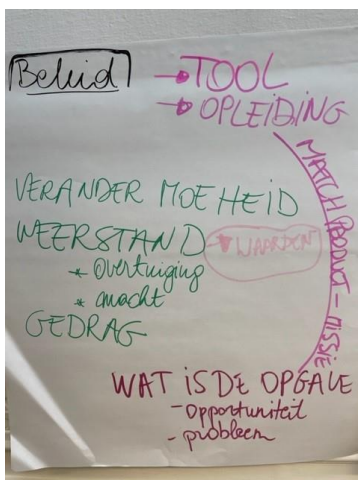 Beleid → TOOL
→ OPLEIDING
MATCH PRODUCT - MISSIE
VERANDER MOEHEID
WEERSTAND → WAARDEN
* overtuiging
* macht
GEDRAG
WAT IS DE OPGAVE
- Opportuniteit
- probleem